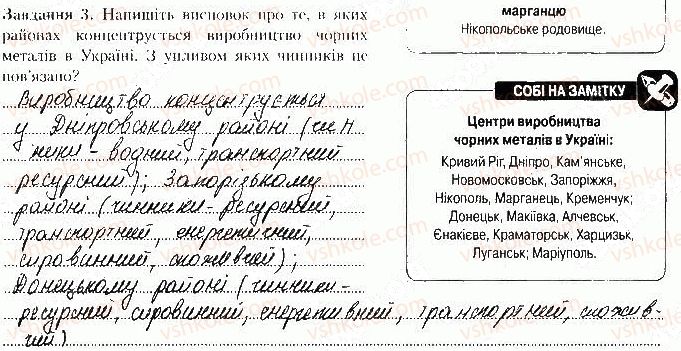 Завдання 3. Напишіть висновок про те, в яких
районах концентрується виробництво чорних
металів в Україні. З впливом яких чинників це
пов'язано?
Виробництво концентрується
у Дніпровському районі (чин
ники - водний, транспортний
ресурсний); Запорізькому
районі (чинники - ресурсний,
транспортний, енергетичний,
сировинний, споживчий);
Донецькому районі (чинники -
ресурсний, сировинний, транспортний, спожив-
чий)
марганцю
Нікопольське родовище.
СОБІ НА ЗАМІТКУ
Центри виробництва
чорних металів в Україні:
Кривий Ріг, Дніпро, Кам'янське,
Новомосковськ, Запоріжжя,
Нікополь, Марганець, Кременчук;
Донецьк, Макіївка, Алчевськ,
Єнакієве, Краматорськ, Харцизьк,
Луганськ; Маріуполь.